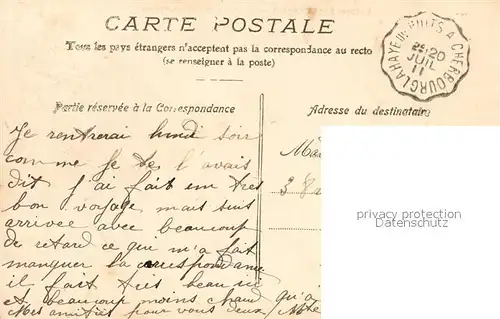 CARTE POSTALE
Tous les pays étrangers n'acceptent pas la correspondance au recto
(se renseigner à la poste)
LA HAYE DU PUITS A CHERBOURG
20
JUIL
11
Partie réservée à la Correspondance
Adresse du destinataire
Je rentrerai lundi soir
comme je te l'avais
dit j'ai fait un très
bon voyage mais suis
arrivée avec beaucoup
de retard ce qui m'a fait
manquer la correspondance
il fait très beau ici
et beaucoup moins chaud qu'à
Mes amitiés pour vous deux
Ma
38
privacy protection
Datenschutz